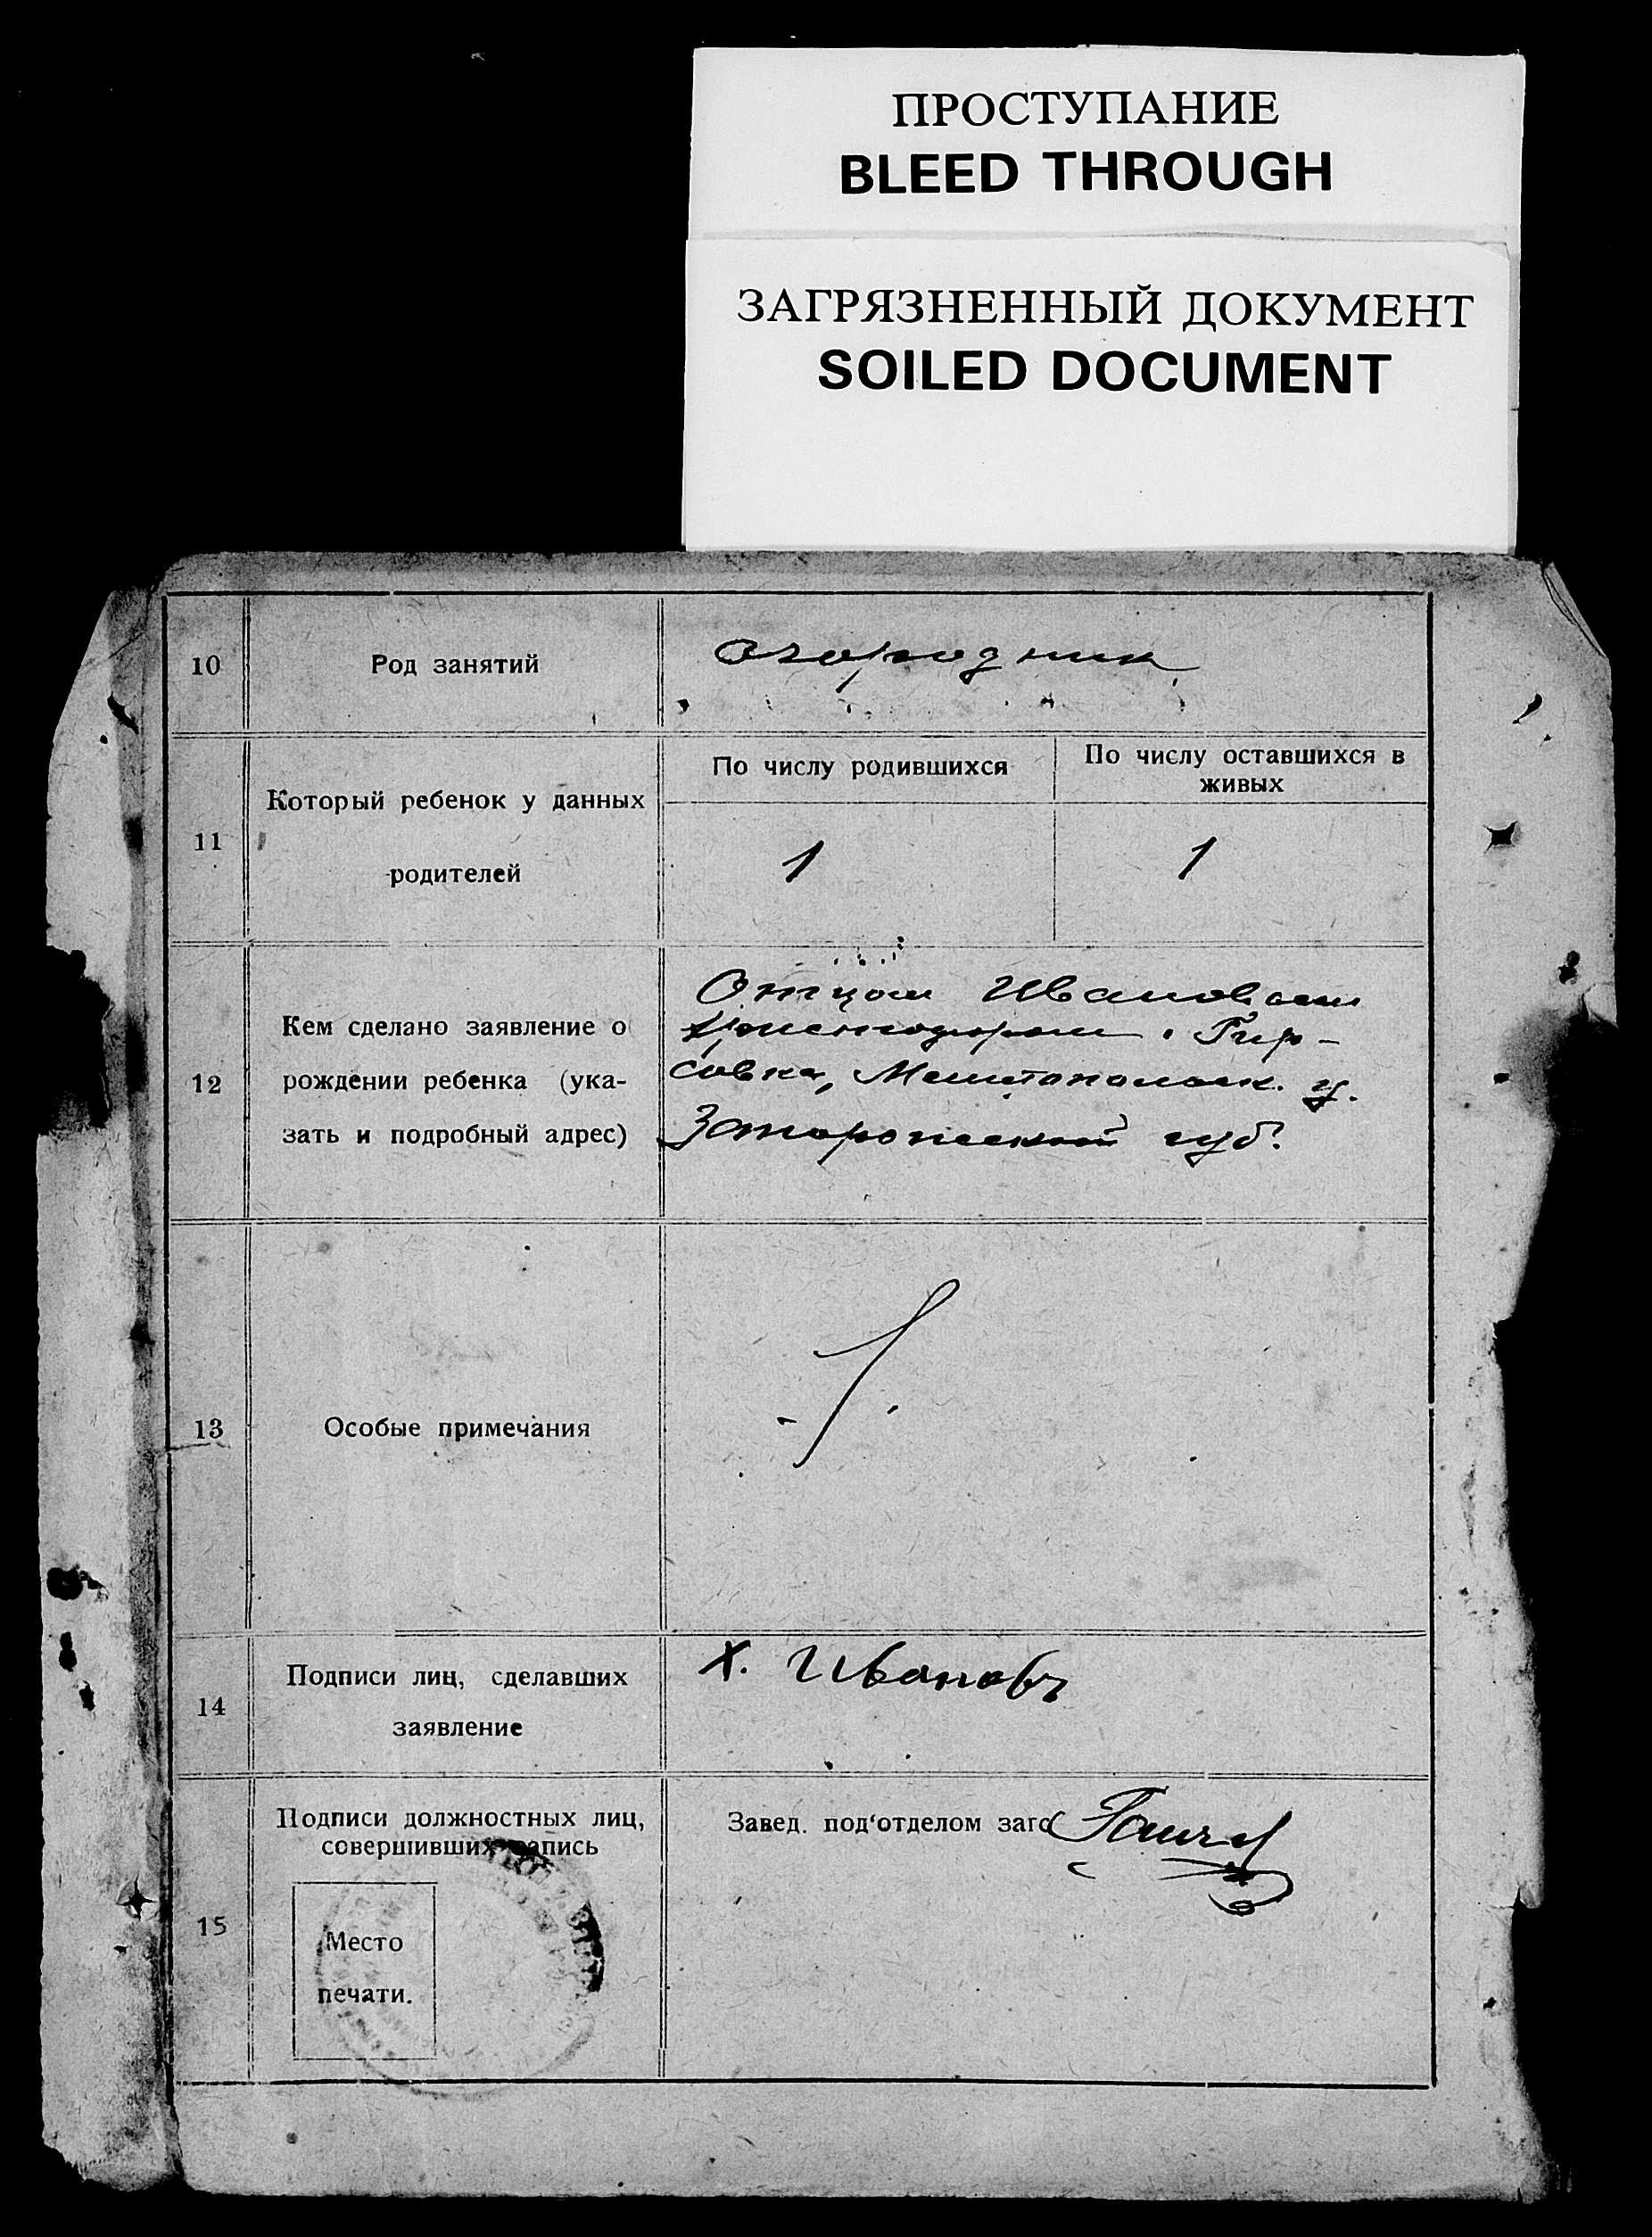 ПРОСТУПАНИЕ
BLEED THROUGH
ЗАГРЯЗНЕННЫЙ ДОКУМЕНТ
SOILED DOCUMENT
10 Род занятий огородник
11 Который ребенок у данных
родителей
По числу родившихся
1
По числу оставшихся в
живых
1
12
Кем сделано заявление о
рождении ребенка (ука-
зать и подробный адрес)
Отцом Ивановым
Христофором. Гир-
совка, у.
Запорожской губ.
13 Особые примечания
14
Подписи лиц, сделавших
заявление
Х. Ивановъ
15
Подписи должностных лиц,
совершивших запись
Место
печати.
Завед. под‘отделом загс